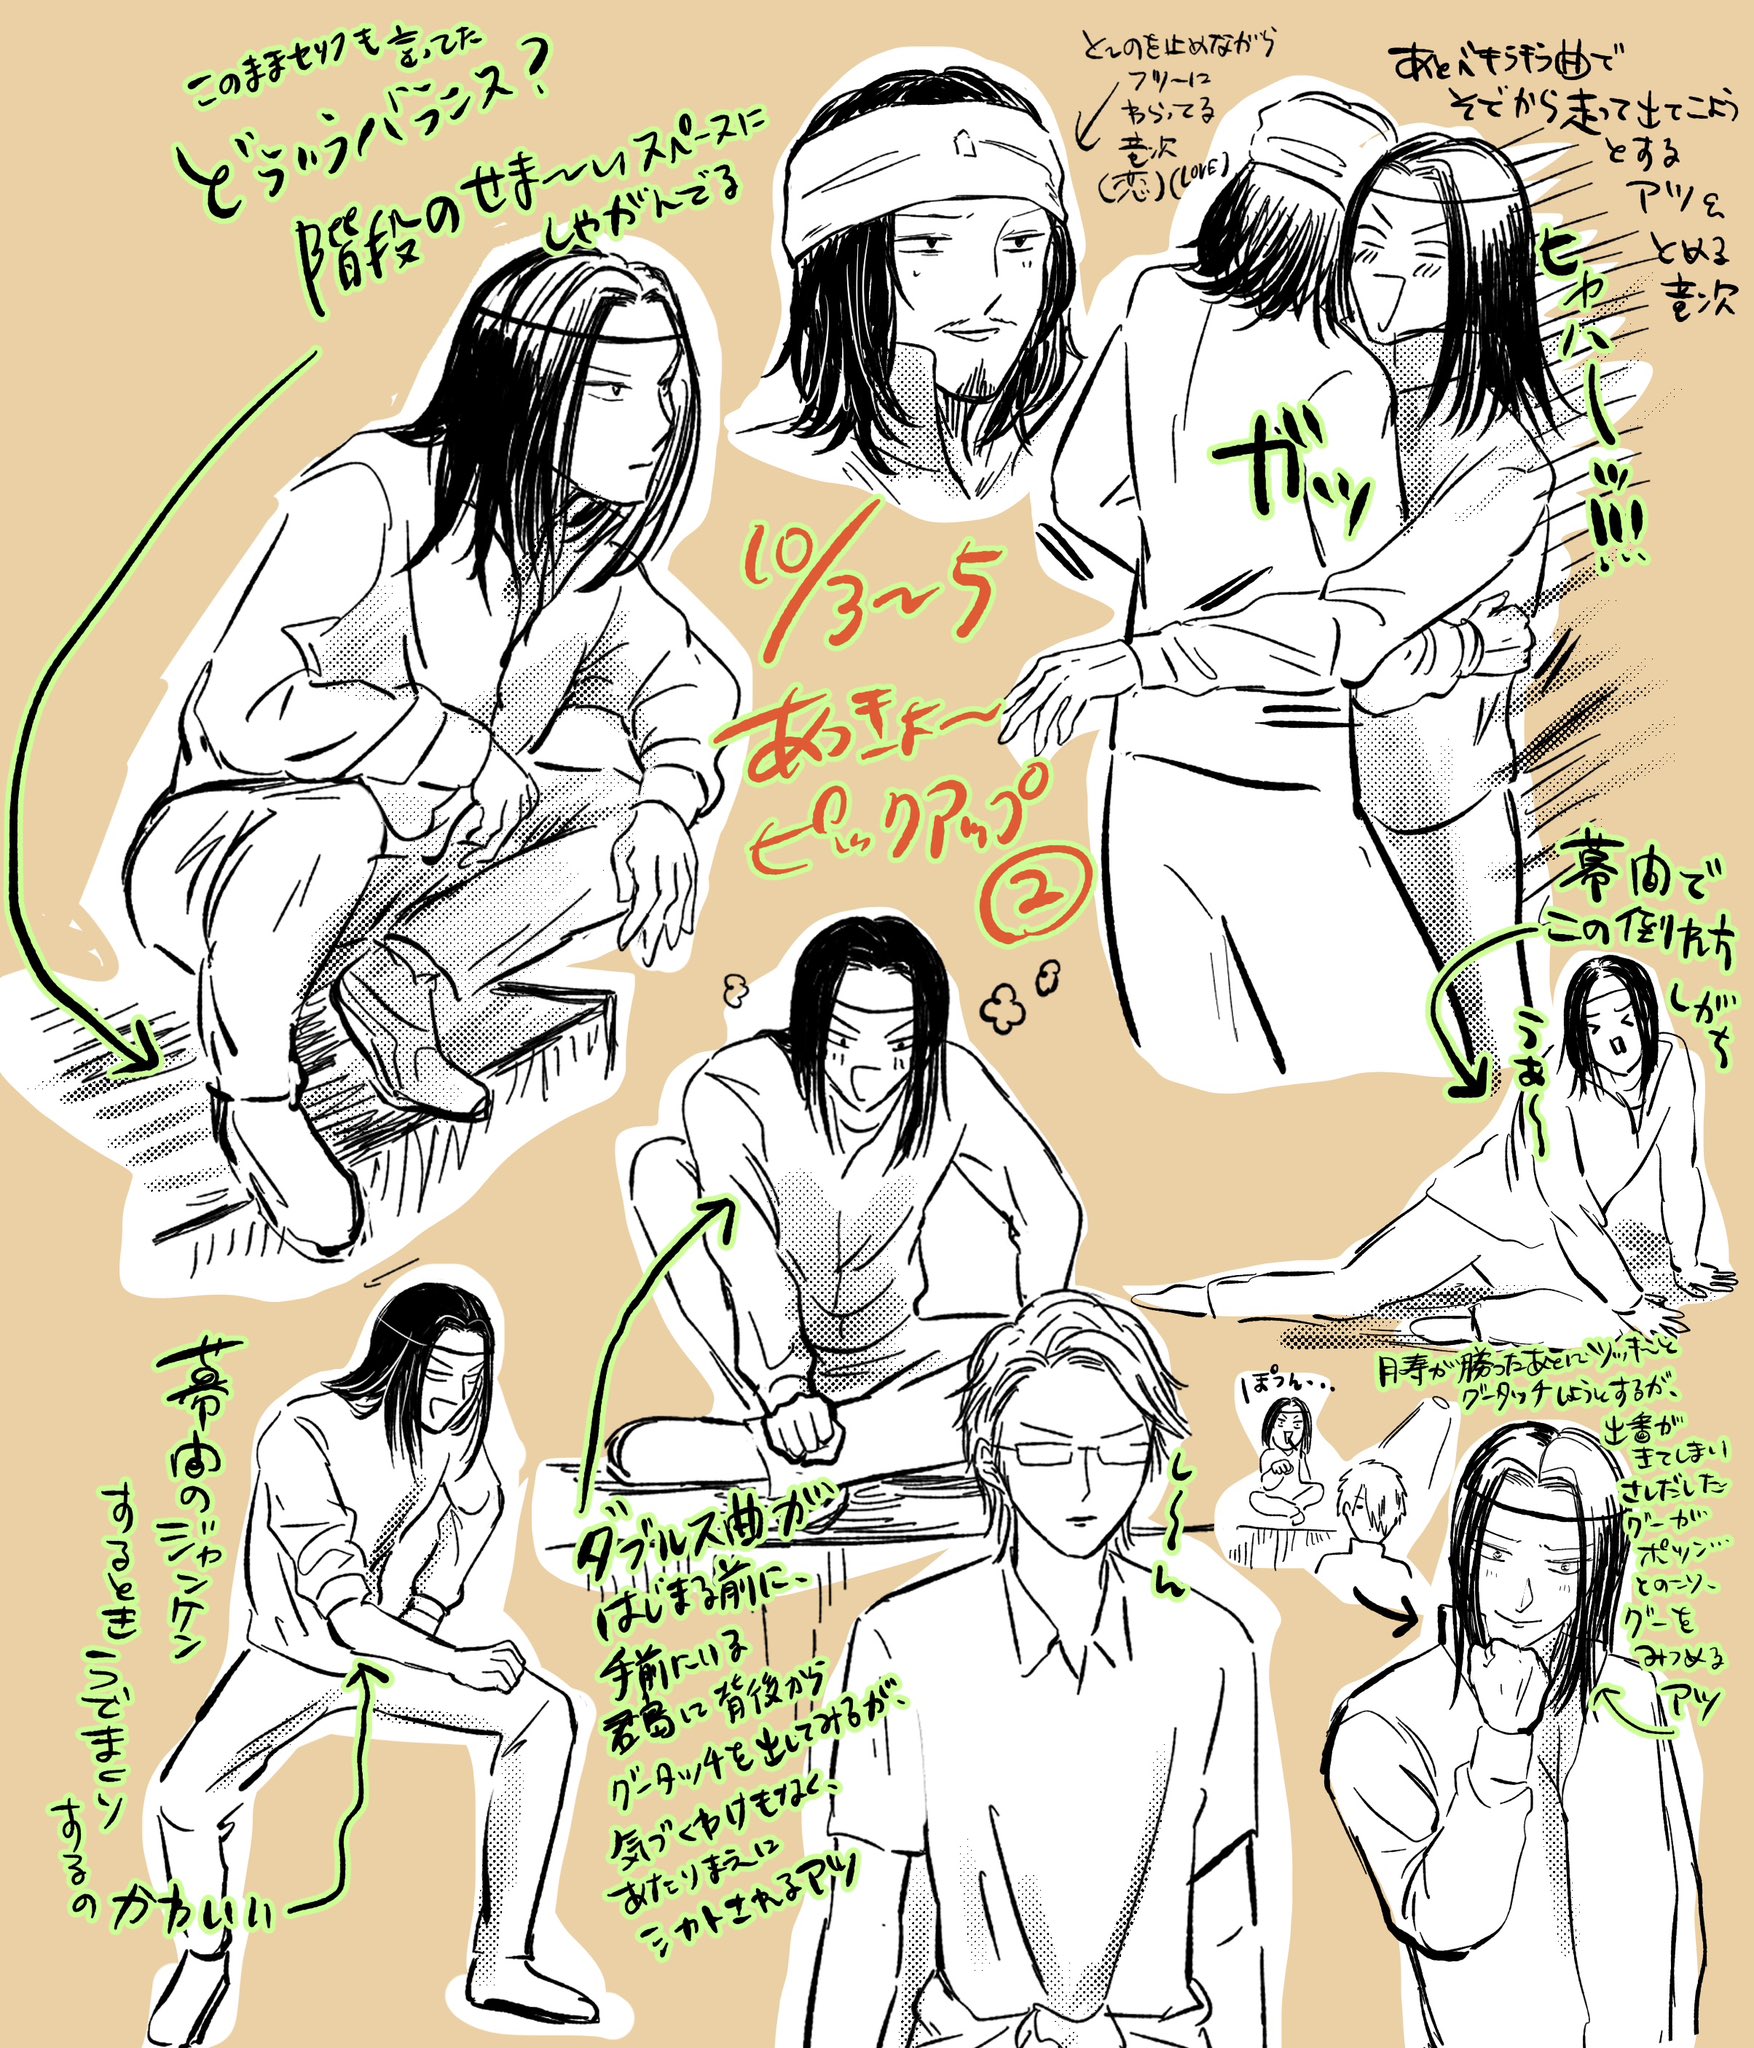 このままセリフも言ってた
どういうバランス?
階段のせま〜いスペースに
しゃがんでる
とーのを止めながら
フツーに
わらってる
竜次
(恋)(LOVE)
あとべキラキラ曲で
そでから走って出てこよう
とする
アツを
とめる
竜次
ヒャハーーッ!!!
ガッ
10/3〜5
あつきょ〜
ピックアップ
②
幕間で
この倒れ方
しがち
うあ〜
幕間のジャンケン
するときうでまくり
するの かわいい
ダブルス曲が
はじまる前に、
手前にいる
君島に背後から
グータッチを出してみるが、
気づくわけもなく、
あたりまえに
シカトされるアツ
し〜ん
月寿が勝ったあとにツッキーと
グータッチしようとするが、
出番が
きてしまい
さしだした
グーが
ポツン…
とのこり、
グーを
みつめる
アツ
ぽつん…